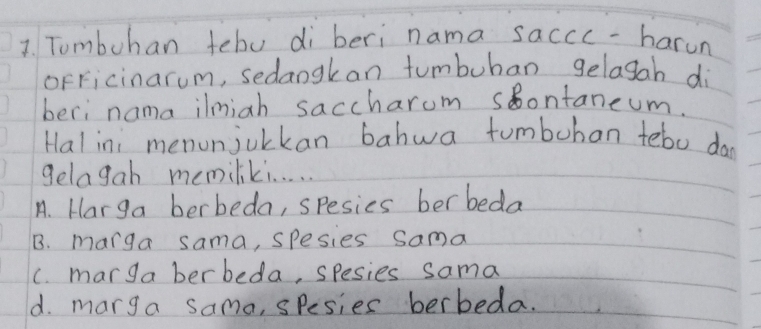 1. Tumbuhan tebu di beri nama saccc - harun
officinarum, sedangkan tumbuhan gelagah di
beri nama ilmiah saccharum spontaneum.
Hal ini menunjukkan bahwa tumbuhan tebu dan
gelagah memiliki.....
A. Harga berbeda, spesies berbeda
B. marga sama, spesies sama
C. marga berbeda, spesies sama
d. marga sama, spesies berbeda.